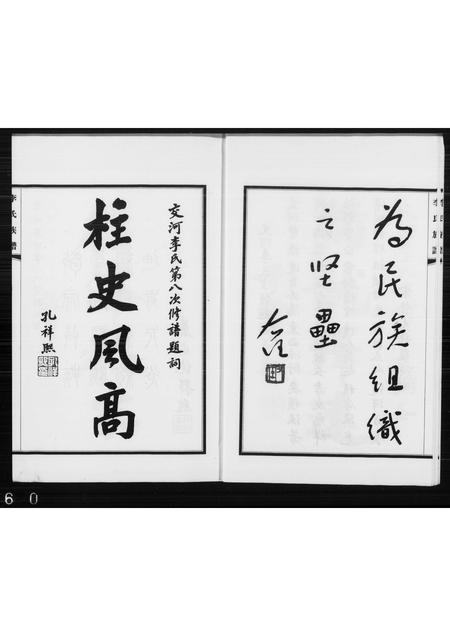 為民族組織
之坚壘
李氏族譜
交河李氏第八次修譜題詞
柱史風高
孔祥熙
李氏族譜
60